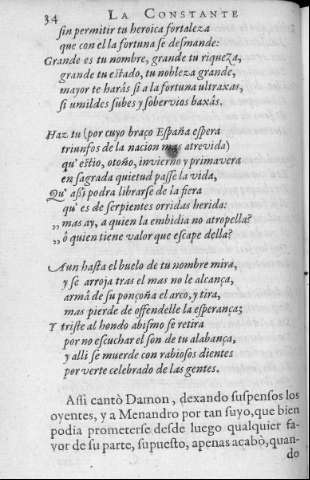 34 LA CONSTANTE
sin permitir tu heroica fortaleza
que con ella fortuna se desmande:
Grande es tu nombre, grande tu riqueza,
grande tu estado, tu nobleza grande,
mayor te harâs si a la fortuna ultraxas,
si umildes subes y sobervios baxâs.
Haz tu (por cuyo braço España espera
triunfos de la nacion mas atrevida)
qu' estio, otoño, invierno y primavera
en sagrada quietud passe la vida,
Qu' assi podra librarse de la fiera
qu' es de serpientes orridas herida:
,, mas ay, a quien la embidia no atropella?
,, ô quien tiene valor que escape della?
Aun hasta el buelo de tu nombre mira,
y se arroja tras el mas no le alcança,
armâ de su ponçoña el arco, y tira,
mas pierde de offendelle la esperança;
Y triste al hondo abismo se retira
por no escuchar el son de tu alabança,
y alli se muerde con rabiosos dientes
por verte celebrado de las gentes.
Assi cantò Damon, dexando suspensos los
oyentes, y a Menandro por tan suyo, que bien
podia prometerse desde luego qualquier fa-
vor de su parte, supuesto, apenas acabò, quan-
do